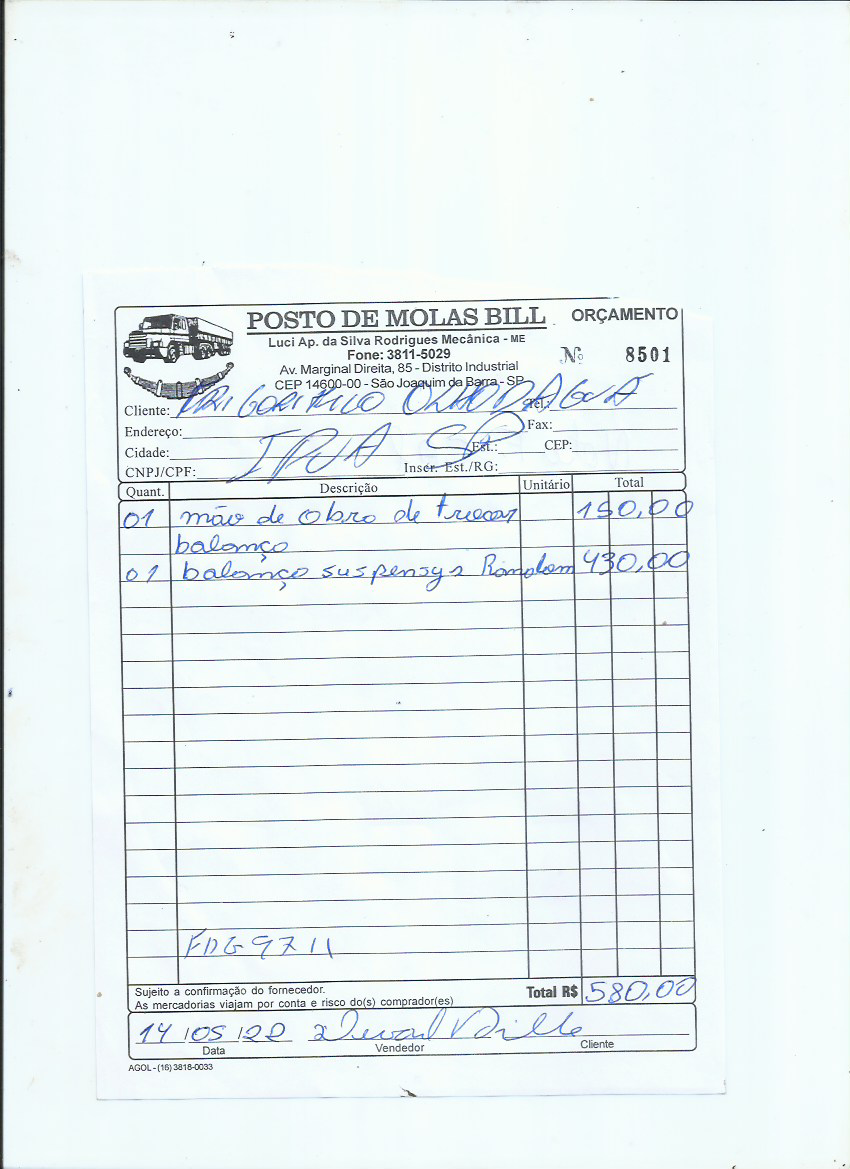 POSTO DE MOLAS BILL
ORÇAMENTO
Luci Ap. da Silva Rodrigues Mecânica - ME
Fone: 3811-5029
Nº 8501
Av. Marginal Direita, 85 - Distrito Industrial
CEP 14600-00 - São Joaquim da Barra - SP
Cliente: FRIGORIFICO OLHO D AGUA Tel.:
Endereço: Fax:
Cidade: IPUA SP Est.: CEP:
CNPJ/CPF: Inscr. Est./RG:
Quant. Descrição Unitário Total
01 mão de obro de trocar 150,00
balanço
01 balanço suspensys Randon 430,00
FDG9711
Sujeito a confirmação do fornecedor.
As mercadorias viajam por conta e risco do(s) comprador(es)
Total R$ 580,00
14/05/22
Data Vendedor Cliente
AGOL - (16) 3818-0033